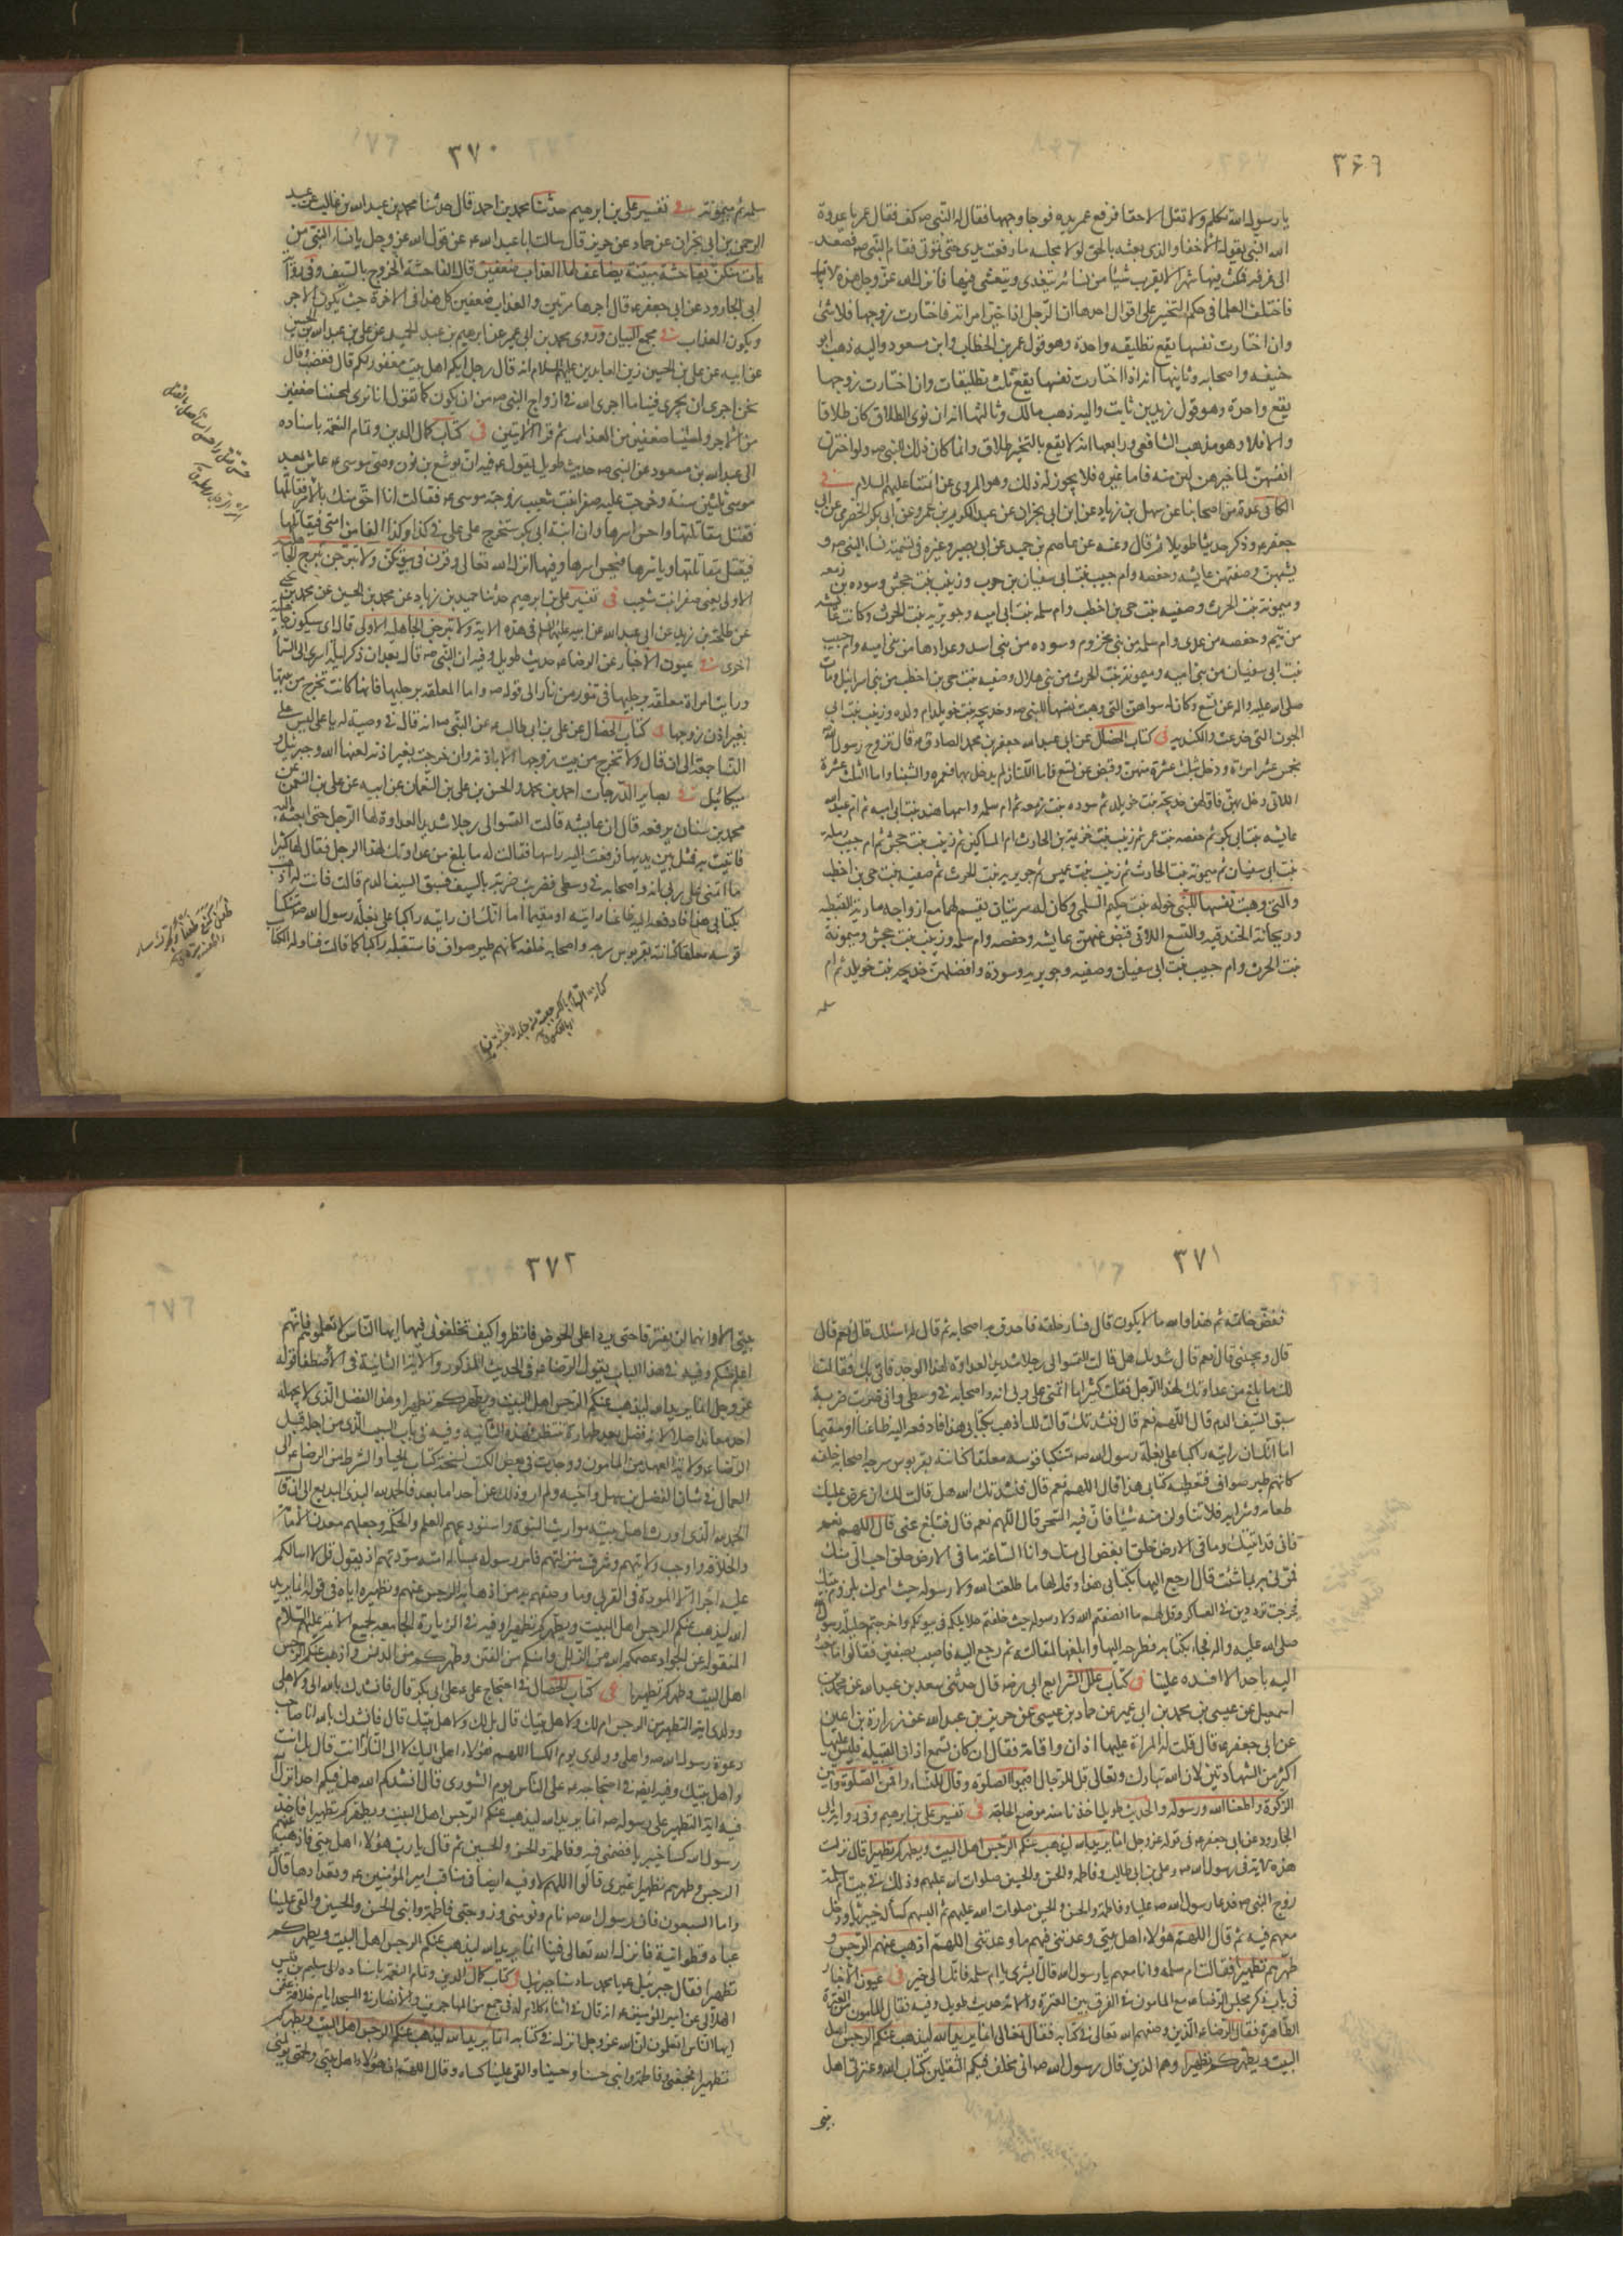 ٣۶٩
يا رسول الله تكلم ولا تقل الا حقا فرفع عمر يده فوجأ وجهها فقال له النبي ص كف فقال عمر يا عدوة
الله النبي لا يقول الا حقا والذي بعثه بالحق لولا مجلسه ما رفعت يدي حتى تموتي فقام النبي ص فصعد
الى غرفة فمكث فيها شهرا لا يقرب شيئا من نسائه يتغدى ويتعشى فيها فانزل الله عز وجل هذه الايات
فاختلف العلما في حكم التخيير على اقوال احدها ان الرجل اذا خير امراته فاختارت زوجها فلا شئ
وان اختارت نفسها يقع تطليقه واحدة وهو قول عمر بن الخطاب وابن مسعود واليه ذهب ابو
حنيفه واصحابه وثانيها انه اذا اختارت نفسها يقع ثلث تطليقات وان اختارت زوجها
يقع واحدة وهو قول زيد بن ثابت واليه ذهب مالك وثالثها انه ان نوى الطلاق كان طلاقا
والا فلا وهو مذهب الشافعي ورابعها انه لا يقع بالتخير طلاق وانما كان ذلك للنبي ص ولو اخترن
انفسهن لما خيرهن لبن منه فاما غيره فلا يجوز له ذلك وهو المروي عن ائمتنا عليهم السلام في
الكافي عدة من اصحابنا عن سهل بن زياد عن ابن ابي نجران عن عبد الكريم بن عمرو عن ابي بكر الحضرمي عن ابي
جعفر ع وذكر حديثا طويلا ثم قال وعنه عن عاصم بن حميد عن ابي بصير وغيره في تسمية نساء النبي ص و
نسبهن وصفتهن عايشه وحفصه وام حبيب بنت ابي سفيان بن حرب وزينب بنت جحش وسوده بنت زمعه
وميمونه بنت الحرث وصفيه بنت حي بن اخطب وام سلمه بنت ابي اميه وجويريه بنت الحرث وكانت عايشه
من تيم وحفصه من عدي وام سلمه من بني مخزوم وسوده من بني اسد وعدادها من بني اميه وام حبيب
بنت ابي سفيان من بني اميه وميمونه بنت الحرث من بني هلال وصفيه بنت حي بن اخطب من بني اسرائيل ومات
صلى الله عليه واله عن تسع وكان له سواهن التي وهبت نفسها للنبي ص وخديجه بنت خويلد ام ولده وزينب بنت ابي
الجون التي خدعت والكنديه في كتاب الخصال عن ابي عبد الله جعفر بن محمد الصادق ع قال تزوج رسول الله
بخمس عشر امراة ودخل بثلث عشرة منهن وقبض عن تسع فاما اللتان لم يدخل بهما فعمره والشنبا واما الثلث عشرة
اللاتي دخل بهن فاولهن خديجه بنت خويلد ثم سوده بنت زمعه ثم ام سلمه واسمها هند بنت ابي اميه ثم ام عبد الله
عايشه بنت ابي بكر ثم حفصه بنت عمر ثم زينب بنت خزيمة بن الحارث ام المساكين ثم زينب بنت جحش ثم ام حبيب رمله
بنت ابي سفيان ثم ميمونه بنت الحارث ثم زينب بنت عميس ثم جويريه بنت الحرث ثم صفيه بنت حي بن اخطب
والتي وهبت نفسها للنبي خوله بنت حكيم السلمي وكان له سريتان يقسم لهما مع ازواجه ماريه القبطيه
وريحانة الخندقيه والتسع اللاتي قبض عنهن عايشه وحفصه وام سلمه وزينب بنت جحش وميمونة
بنت الحرث وام حبيب بنت ابي سفيان وصفيه وجويريه وسودة وافضلهن خديجه بنت خويلد ثم ام
سلمه
٣٧٠
سلمه ثم ميمونه في تفسير علي بن ابرهيم حدثنا محمد بن احمد قال حدثنا محمد بن عبد الله بن غالب عن عبد
الرحمن بن ابي نجران عن حماد عن حريز قال سالت ابا عبد الله ع عن قول الله عز وجل يا نساء النبي من
يات منكن بفاحشة مبينة يضاعف لها العذاب ضعفين قال الفاحشة الخروج بالسيف وفي رواية
ابي الجارود عن ابي جعفر ع قال اجرها مرتين والعذاب ضعفين كل هذا في الاخرة حيث يكون الاجر
ويكون العذاب في مجمع البيان وروى محمد بن ابي عمير عن ابرهيم بن عبد الحميد عن علي بن عبد الله بن الحسين
عن ابيه عن علي بن الحسين زين العابدين عليهم السلام انه قال رجل انكم اهل بيت مغفور لكم قال فغضب وقال
نحن احرى ان يجري فينا ما اجرى الله في ازواج النبي ص من ان نكون كما تقول انا نرى لمحسننا ضعفين
من الاجر ولمسيئنا ضعفين من العذاب ثم قرا الايتين في كتاب كمال الدين وتمام النعمة باسناده
الى عبد الله بن مسعود عن النبي ص حديث طويل يقول فيه ان يوشع بن نون وصي موسى ع عاش بعد
موسى ثلثين سنة وخرجت عليه صفرا بنت شعيب زوجة موسى ع فقالت انا احق منك بالامر فقاتلها
فقتل مقاتلتها واحسن اسرها وان ابنة ابي بكر ستخرج على علي في كذا وكذا الفا من امتي فيقاتلها
فيقتل مقاتلتها وياسرها فيحسن اسرها وفيها انزل الله تعالى وقرن في بيوتكن ولا تبرجن تبرج الجاهلية
الاولى يعني صفرا بنت شعيب في تفسير علي بن ابرهيم حدثنا حميد بن زياد عن محمد بن الحسين عن محمد بن يحيى
عن طلحة بن زيد عن ابي عبد الله عن ابيه عليهما السلم في هذه الاية ولا تبرجن تبرج الجاهلية الاولى قال اي سيكون جاهلية
اخرى في عيون الاخبار عن الرضا ع حديث طويل وفيه ان النبي ص قال بعد ان ذكر ليلة اسرى الى السماء
ورايت امراة معلقة برجليها في تنور من نار الى قوله ص واما المعلقة برجليها فانها كانت تخرج من بيتها
بغير اذن زوجها في كتاب الخصال عن علي بن ابي طالب ع عن النبي ص انه قال في وصية له يا علي ليس على
النساء جمعة الى ان قال ولا تخرج من بيت زوجها الا باذنه فان خرجت بغير اذنه لعنها الله وجبرئيل و
ميكائيل في بصاير الدرجات احمد بن محمد والحسن بن علي بن النعمان عن ابيه علي بن النعمان عن
محمد بن سنان يرفعه قال ان عايشه قالت التمسوا لي رجلا شديد العداوة لهذا الرجل حتى ابعثه اليه
فاتيت به فمثل بين يديها فرفعت اليه راسها فقالت له ما بلغ من عداوتك لهذا الرجل فقال لها كثيرا
ما اتمنى على ربي انه واصحابه في وسطي فضربت ضربة بالسيف فسبق السيف الدم قالت فانت له اذهب
بكتابي هذا فادفعه اليه ظاعنا رايته او مقيما اما انك ان رايته رايته راكبا على بغلة رسول الله ص متنكبا
قوسه معلقا كنانته بقربوس سرجه واصحابه خلفه كانهم طير صواف فاستقبله راكبا كما قالت فناوله الكتاب
٣٧١
ففض خاتمه ثم هذا والله ما لا يكون قال فسار خلفه فاحدق به اصحابه ثم قال له اسئلك قال نعم قال
قال وتجبني قال نعم قال نشدتك الله هل قالت التمسوا لي رجلا شديد العداوة لهذا الرجل فاتي بك فقالت
لك ما بلغ من عداوتك لهذا الرجل فقلت كثيرا ما اتمنى على ربي انه واصحابه في وسطي واني ضربت ضربة
سبق السيف الدم قال اللهم نعم قال فنشدتك قالت لك اذهب بكتابي هذا فادفعه اليه ظاعنا او مقيما
اما انك ان رايته راكبا على بغلة رسول الله ص متنكبا قوسه معلقا كنانته بقربوس سرجه اصحابه خلفه
كانهم طير صواف فتعطيه كتابي هذا قال اللهم نعم قال فنشدتك الله هل قالت لك ان عرض عليك
طعامه وشرابه فلا تناولن منه شيئا فان فيه السحر قال اللهم نعم قال فتبلغ عني قال اللهم نعم
فاني قد اتيتك وما في الارض خلق ابغض الي منك وانا الساعة ما في الارض خلق احب الي منك
فمرني بما شئت قال ارجع اليها بكتابي هذا وقل لها ما اطعت الله ولا رسوله حيث امرك بلزوم بيتك
فخرجت ترددين في العساكر وقل لهم ما انصفتم الله ولا رسوله حيث خلفتم حلايلكم في بيوتكم واخرجتم حليلة رسول الله
صلى الله عليه واله فجاء بكتابه فطرحه اليها وابلغها المقالة ثم رجع اليه فاصيب بصفين فقالوا ما نبعث
اليه باحد الا افسده علينا في كتاب علل الشرايع ابي ره قال حدثني سعد بن عبد الله عن محمد بن
اسمعيل عن عيسى بن محمد بن ابي عمير عن حماد بن عيسى عن حريز بن عبد الله عن زرارة بن اعين
عن ابي جعفر ع قال قلت له المراة عليها اذان واقامة فقال ان كان تسمع اذان القبيله فليس عليها
اكثر من الشهادتين لان الله تبارك وتعالى قال للرجال اقيموا الصلوة وقال للنساء واقمن الصلوة واتين
الزكوة واطعن الله ورسوله والحديث طويل اخذنا منه موضع الحاجة في تفسير علي بن ابرهيم وفي رواية ابي
الجارود عن ابي جعفر ع في قوله عز وجل انما يريد الله ليذهب عنكم الرجس اهل البيت ويطهركم تطهيرا قال نزلت
هذه الاية في رسول الله ص وعلي بن ابي طالب وفاطمة والحسن والحسين صلوات الله عليهم وذلك في بيت ام سلمة
زوج النبي ص فدعا رسول الله ص عليا وفاطمة والحسن والحسين صلوات الله عليهم ثم البسهم كساء له خيبريا ودخل
معهم فيه ثم قال اللهم هؤلاء اهل بيتي وعدتني فيهم ما وعدتني اللهم اذهب عنهم الرجس و
طهرهم تطهيرا فقالت ام سلمه وانا معهم يا رسول الله قال ابشري يا ام سلمه فانك الى خير في عيون الاخبار
في باب ذكر مجلس الرضا ع مع المامون في الفرق بين العترة والامة حديث طويل وفيه فقال المامون من العترة
الطاهرة فقال الرضا ع الذين وصفهم الله تعالى في كتابه فقال تعالى انما يريد الله ليذهب عنكم الرجس اهل
البيت ويطهركم تطهيرا وهم الذين قال رسول الله ص اني مخلف فيكم الثقلين كتاب الله وعترتي اهل
بيتي
٣٧٢
بيتي الا وانهما لن يفترقا حتى يردا على الحوض فانظروا كيف تخلفوني فيهما ايها الناس لا تعلموهم فانهم
اعلم منكم وفيه في هذا الباب يقول الرضا ع في الحديث المذكور والاية الثانية في الاصطفا قوله
عز وجل انما يريد الله ليذهب عنكم الرجس اهل البيت ويطهركم تطهيرا وهذا الفضل الذي لا يجهله
احد معاند اصلا لانه فضل بعد طهارة تنتظر فهذه الثانية وفيه في باب السبب الذي من اجله قبل
الرضا ع ولاية العهد من المامون ووجدت في بعض الكتب نسخة كتاب الحباء والشرط من الرضا ع الى
العمال في شان الفضل بن سهل واخيه ولم ارو ذلك عن احد اما بعد فالحمد لله البدئ البديع الى ان قال
الحمد لله الذي اورث اهل بيته مواريث النبوة واستودعهم العلم والحكمة وجعلهم معدن الامامة
والخلافة واوجب ولايتهم وشرف منزلتهم فامر رسوله بمسالة امته مودتهم اذ يقول قل لا اسالكم
عليه اجرا الا المودة في القربى وما وصفهم به من اذهابه الرجس عنهم وتطهيره اياهم في قوله انما يريد
الله ليذهب عنكم الرجس اهل البيت ويطهركم تطهيرا وفيه في الزيارة الجامعه لجميع الائمة عليهم السلام
المنقولة عن الجواد عصمكم الله من الزلل وامنكم من الفتن وطهركم من الدنس واذهب عنكم الرجس
اهل البيت وطهركم تطهيرا في كتاب الخصال في احتجاج علي ع على ابي بكر قال فانشدك بالله الي ولاهلي
وولدي اية التطهير من الرجس ام لك ولاهل بيتك قال بل لك ولاهل بيتك قال فانشدك بالله انا صاحب
دعوة رسول الله ص واهلي وولدي يوم الكسا اللهم هؤلاء اهلي اليك لا الى النار ام انت قال بل انت
واهل بيتك وفيه ايضا في احتجاجه ع على الناس يوم الشورى قال انشدكم الله هل فيكم احد انزل
فيه اية التطهير على رسوله ص انما يريد الله ليذهب عنكم الرجس اهل البيت ويطهركم تطهيرا فاخذ
رسول الله كساء خيبريا فضمني فيه وفاطمة والحسن والحسين ثم قال يا رب هؤلاء اهل بيتي فاذهب عنهم
الرجس وطهرهم تطهيرا غيري قالوا اللهم لا وفيه ايضا في مناقب امير المؤمنين ع وتعدادها قال
واما السبعون فان رسول الله ص نام ونومني وزوجتي فاطمة وابني الحسن والحسين والقى علينا
عباءة قطوانية فانزل الله تعالى فينا انما يريد الله ليذهب عنكم الرجس اهل البيت ويطهركم
تطهيرا فقال جبرئيل ع يا محمد سادسنا جبرئيل في كتاب كمال الدين وتمام النعمة باسناده الى سليم بن قيس
الهلالي عن امير المؤمنين ع انه قال في اثناء كلام له في جمع من المهاجرين والانصار في المسجد ايام خلافة عثمن
ايها الناس اتعلمون ان الله عز وجل انزل في كتابه انما يريد الله ليذهب عنكم الرجس اهل البيت ويطهركم
تطهيرا فجمعني وفاطمة وابني حسنا وحسينا والقى علينا كساء وقال اللهم ان هؤلاء اهل بيتي ولحمتي يؤلمني